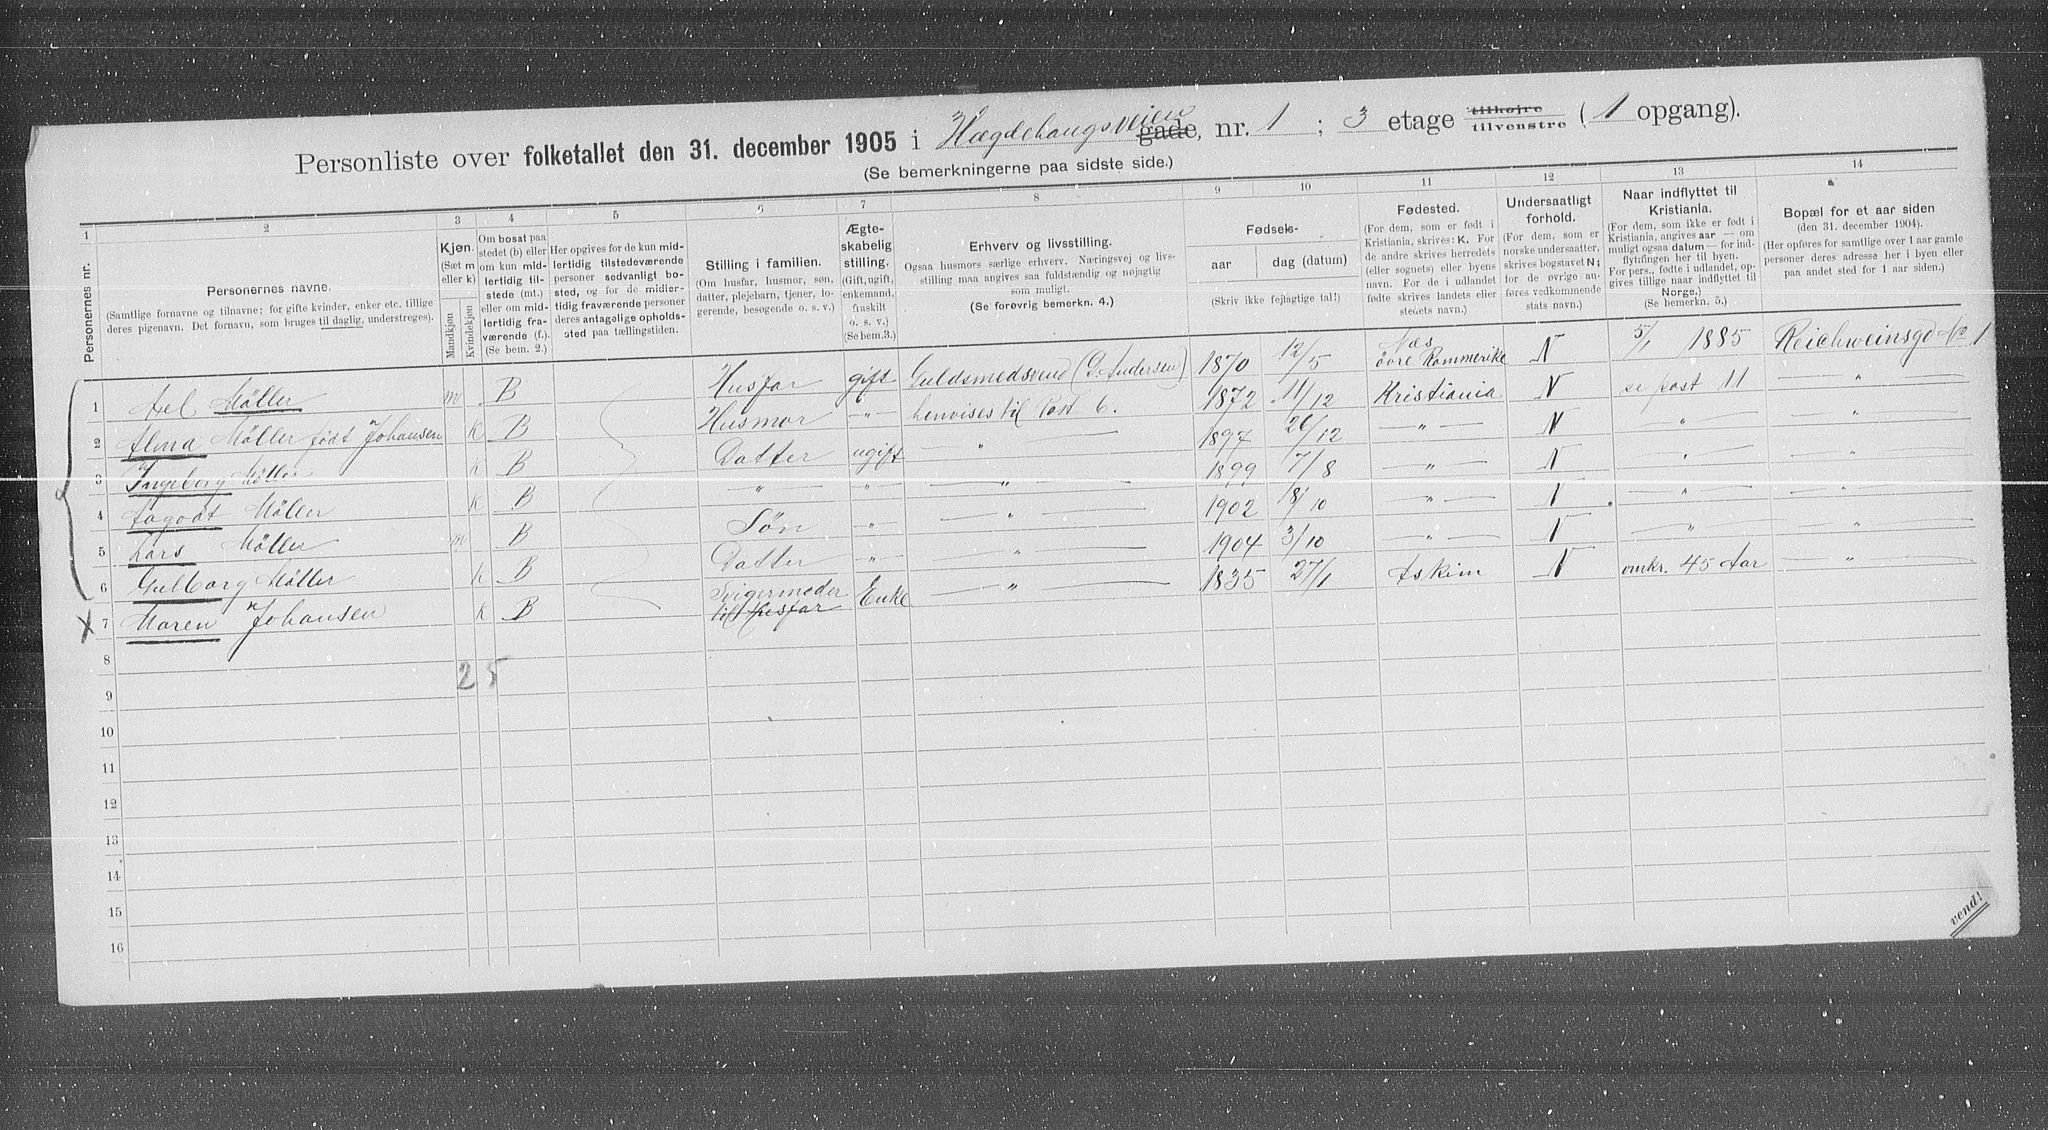 Personliste over folketallet den 31. december 1905 i Hægdehaugsveien gade, nr. 1 ; 3 etage tilhøjre tilvenstre ( 1 opgang).
(Se bemerkningerne paa sidste side.)
1 2 3 4 5 6 7 8 9 10 11 12 13 14
Personernes nr.
Personernes navne.
(Samtlige fornavne og tilnavne; for gifte kvinder, enker etc. tillige deres pigenavn. Det fornavn, som bruges til daglig, understreges).
Kjøn. (Sæt m eller k)
Mandkjøn
Kvindekjøn
Om bosat paa stedet (b) eller om kun midlertidig tilstede (mt.) eller om midlertidig fraværende (f.). (Se bem. 2.)
Her opgives for de kun midlertidig tilstedeværende personer sedvanligt bosted, og for de midlertidig fraværende personer deres antagelige opholdssted paa tællingstiden.
Stilling i familien.
(Om husfar, husmor, søn, datter, plejebarn, tjener, logerende, besøgende o. s. v.)
Ægteskabelig stilling.
(Gift, ugift, enkemand, fraskilt o. s. v.)
(Se bem.3.)
Erhverv og livsstilling.
Ogsaa husmors særlige erhverv. Næringsvej og livsstilling maa angives saa fuldstændig og nøjagtig som muligt.
(Se forøvrig bemerkn. 4.)
Fødsels-
aar
dag (datum)
(Skriv ikke fejlagtige tal!)
Fødested.
(For dem, som er født i Kristiania, skrives: K. For de andre skrives herredets (eller sognets) eller byens navn. For de i udlandet fødte skrives landets eller stedets navn.)
Undersaatligt forhold.
(For dem, som er norske undersaatter, skrives bogstavet N; for de øvrige anføres vedkommende stats navn.)
Naar indflyttet til Kristiania.
(For dem, som ikke er født i Kristiania, angives aar — om muligt ogsaa datum — for indflytingen her til byen. For pers., fødte i udlandet, opgives tillige naar indflyttet til Norge.)
(Se bemerkn. 5.)
Bopæl for et aar siden
(den 31. december 1904).
(Her opføres for samtlige over 1 aar gamle personer deres adresse her i byen eller paa andet sted for 1 aar siden.)
1 Axel Möller m B Husfar gift Guldsmedsvend (D. Andersen) 1870 12/5 Næs övre Rommerike N 5/1 1885 Reichweinsgd No 1
2 Alma Möller født Johansen K B Husmor " henvises til Post 6. 1872 11/12 Kristiania N se post 11 "
3 Ingeborg Möller K B Datter ugift " 1897 26/12 " N " "
4 Aagodt Möller K B " " " 1899 7/8 " N " "
5 Lars Möller m B Søn " " 1902 18/10 " N " "
6 Gulborg Möller K B Datter " " 1904 3/10 " N " "
X 7 Maren Johansen K B Svigermoder til Husfar Enke " 1835 27/1 Askim N omkr. 45 Aar "
8
2 5
9
10
11
12
13
14
15
16
vend!